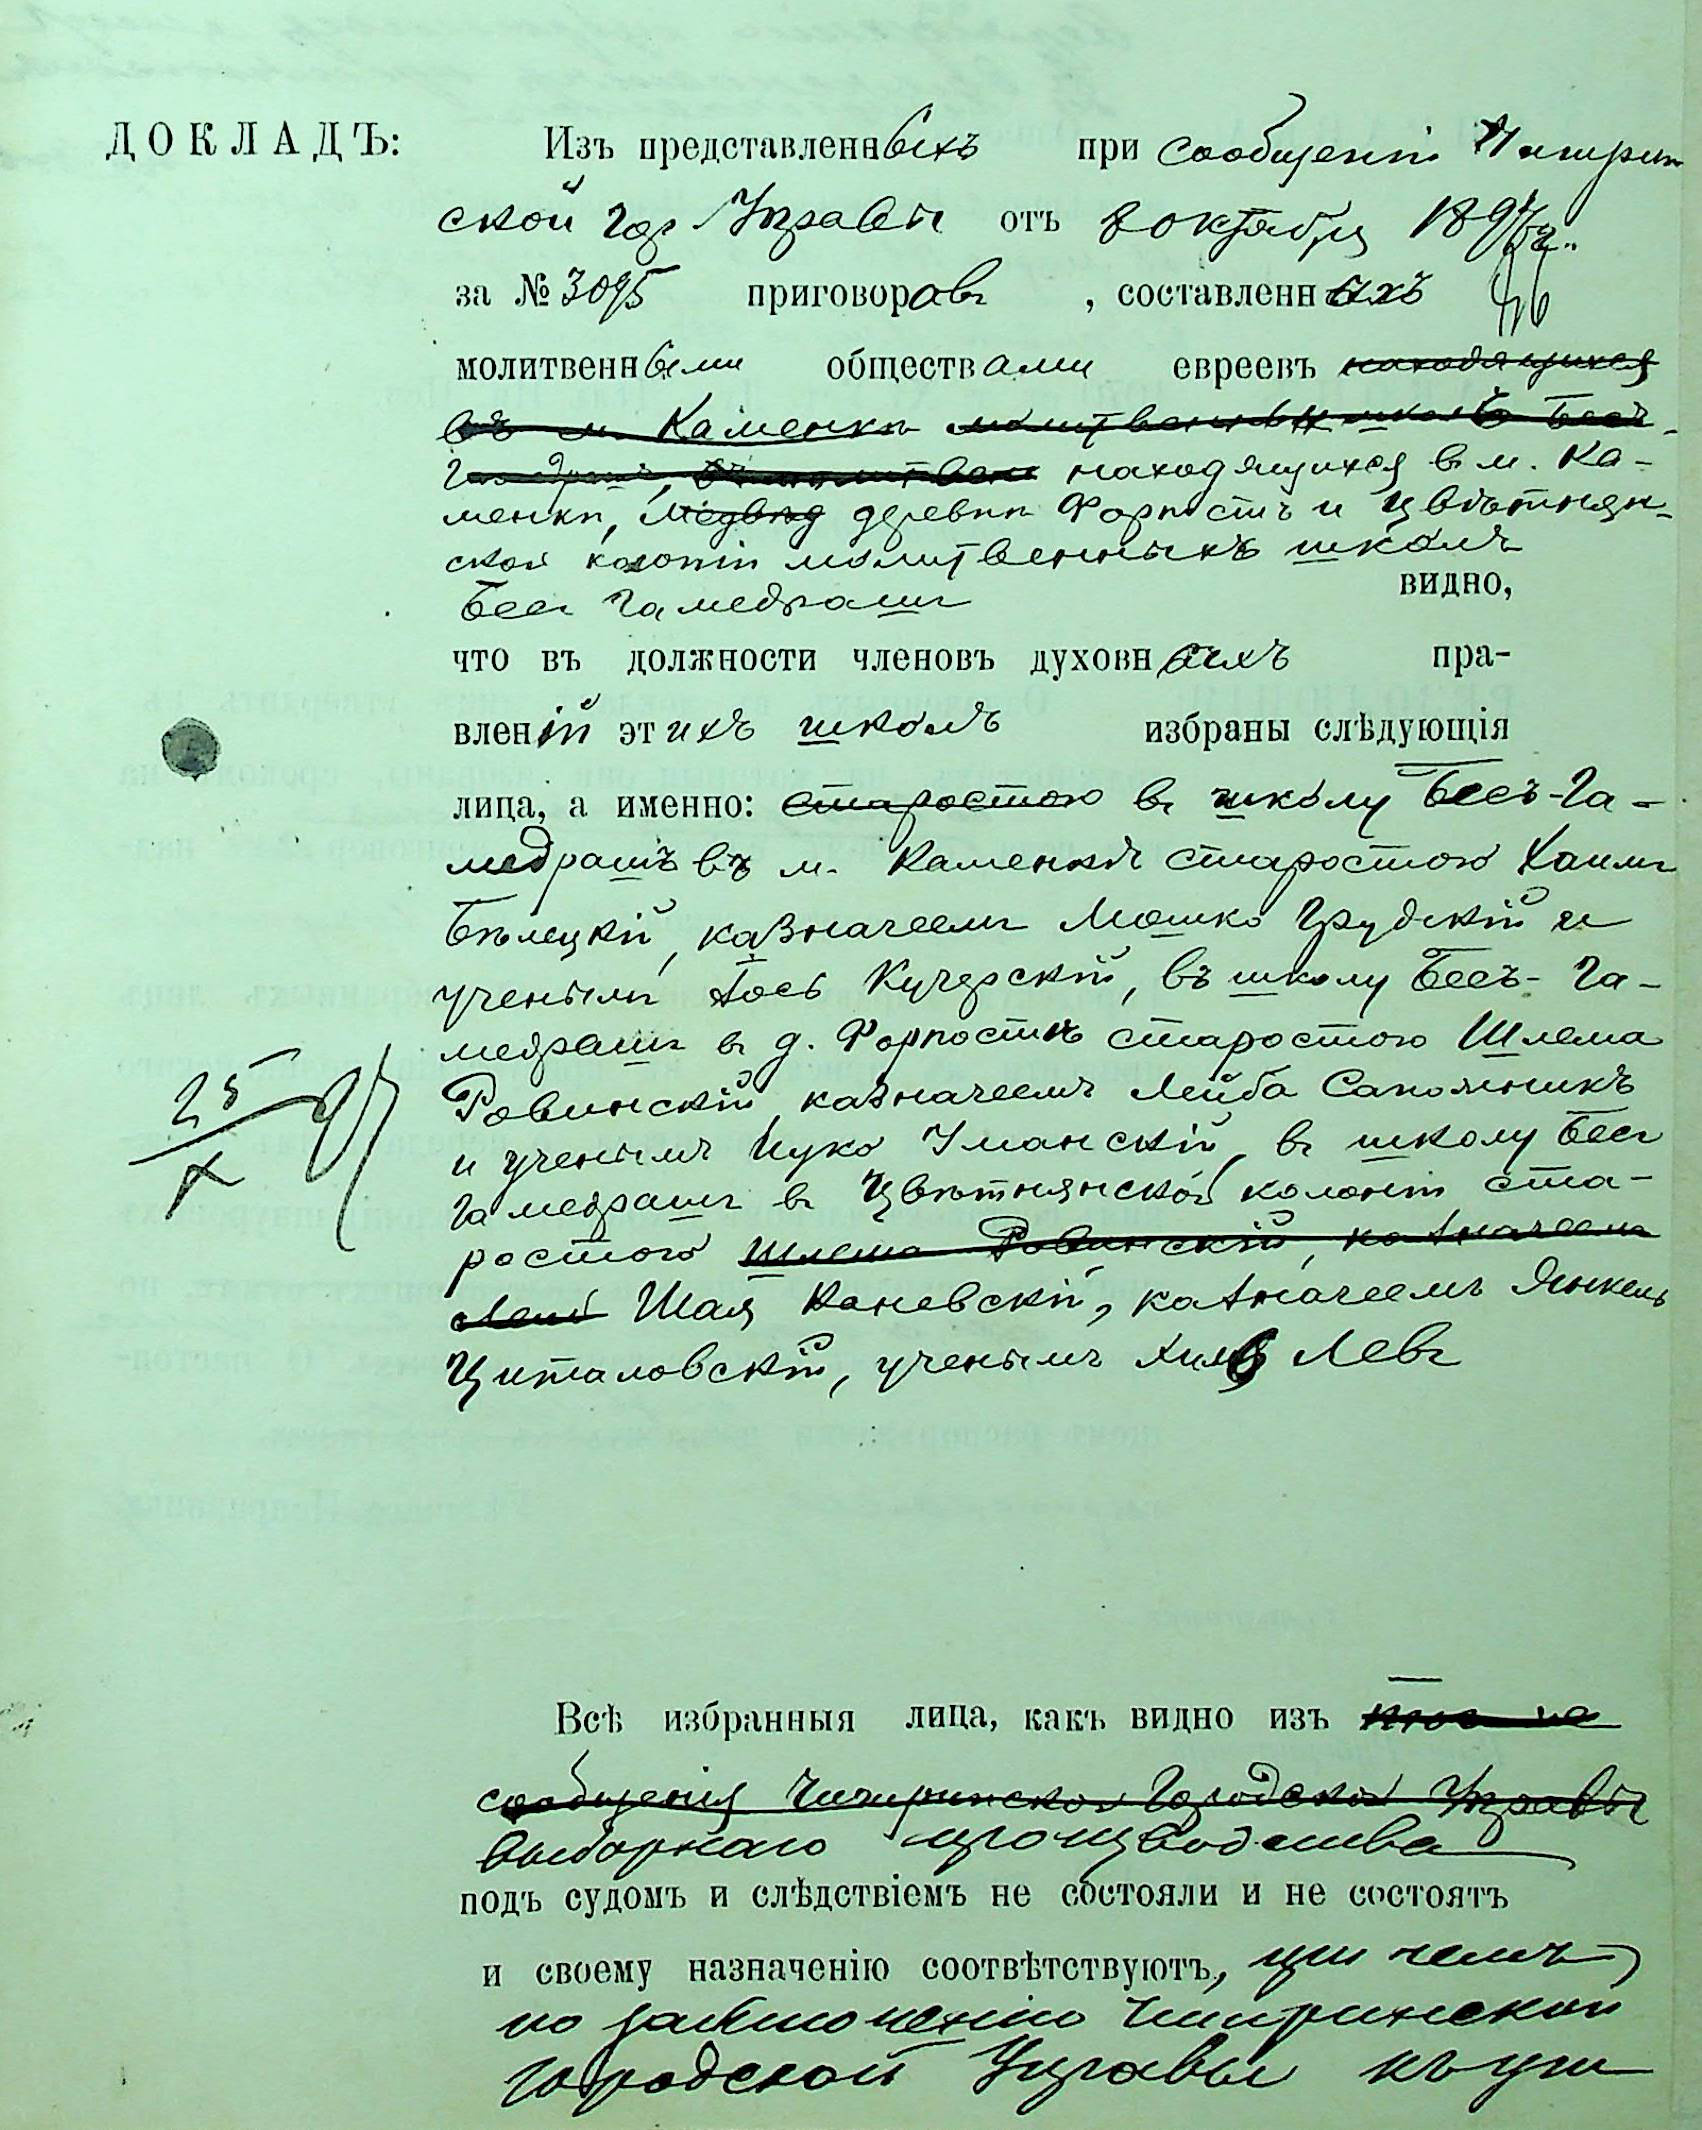 ДОКЛАДЪ: Изъ представленныхъ при сообщеніи Чигирин
ской Гор Управы отъ 8 октября 1897 г.
за № 3095 приговоровъ, составленныхъ
молитвенными обществами евреевъ находящихся
въ м. Каменкѣ молитвенной школѣ Бесъ-
находящихся въ м. Ка-
менкѣ, Медвѣд деревнѣ Форпостъ и Цвѣтнян-
ской колоніи молитвенныхъ школъ
Бесъ Гамедрашъ видно,
что въ должности членовъ духовныхъ пра-
вленій этихъ школъ избраны слѣдующія
лица, а именно: старостою въ школу Бесъ-Га-
медрашъ въ м. Каменкѣ старостою Хаимъ
Бѣлецкій, казначеемъ Мошко Грудскій и
ученымъ Іось Кучерскій, въ школу Бесъ-Га-
медрашъ въ д. Форпостѣ старостою Шлема
Ровинскій, казначеемъ Лейба Сапожникъ
и ученымъ Ицко Уманскій, въ школу Бесъ
Гамедрашъ въ Цвѣтнянской колоніи ста-
ростою Шлема Ровинскій, казначеемъ
Лейб Шая Каневскій, казначеемъ Янкель
Циталовскій, ученымъ Левъ
25/X 97
Всѣ избранныя лица, какъ видно изъ
сообщенія Чигиринской Городской Управы
выборнаго производства
подъ судомъ и слѣдствіемъ не состояли и не состоятъ
и своему назначенію соотвѣтствуютъ, при чемъ
по заключенію Чигиринской
Городской Управы къ